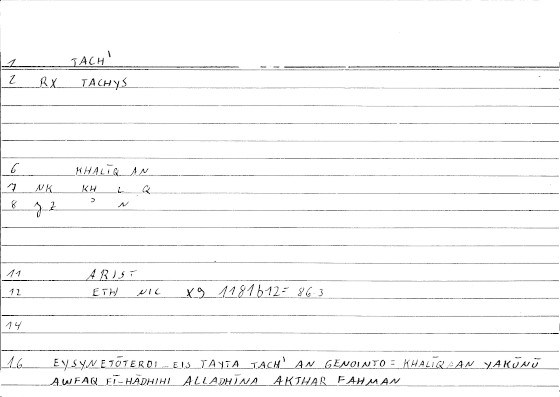 1 TACH'
2 RX TACHYS
6 KHALĪQ AN
7 NK KH L Q
8 ʾ N
11 ARIST
12 ETH NIC X9 1181b12= 86.3
14
16 EYSYNETŌTEROI EIS TAYTA TACH' AN GENOINTO = KHALĪQ AN YAKŪNŪ
AWFAQ FĪ-HĀDHIHI ALLADHĪNA AKTHAR FAHMAN